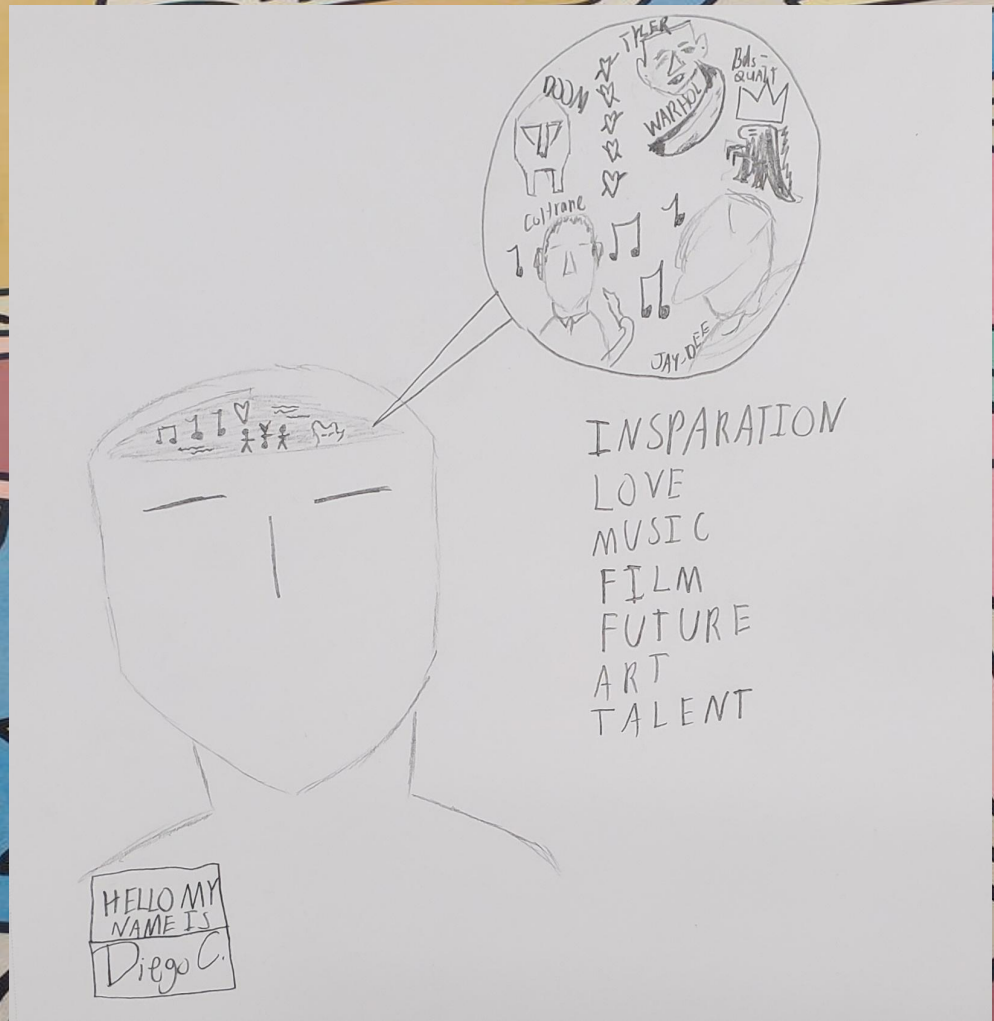 TYLER
DOOM
WARHOL
BAS-
QUAIT
Coltrane
JAY-DEE
INSPARATION
LOVE
MUSIC
FILM
FUTURE
ART
TALENT
HELLO MY
NAME IS
Diego C.